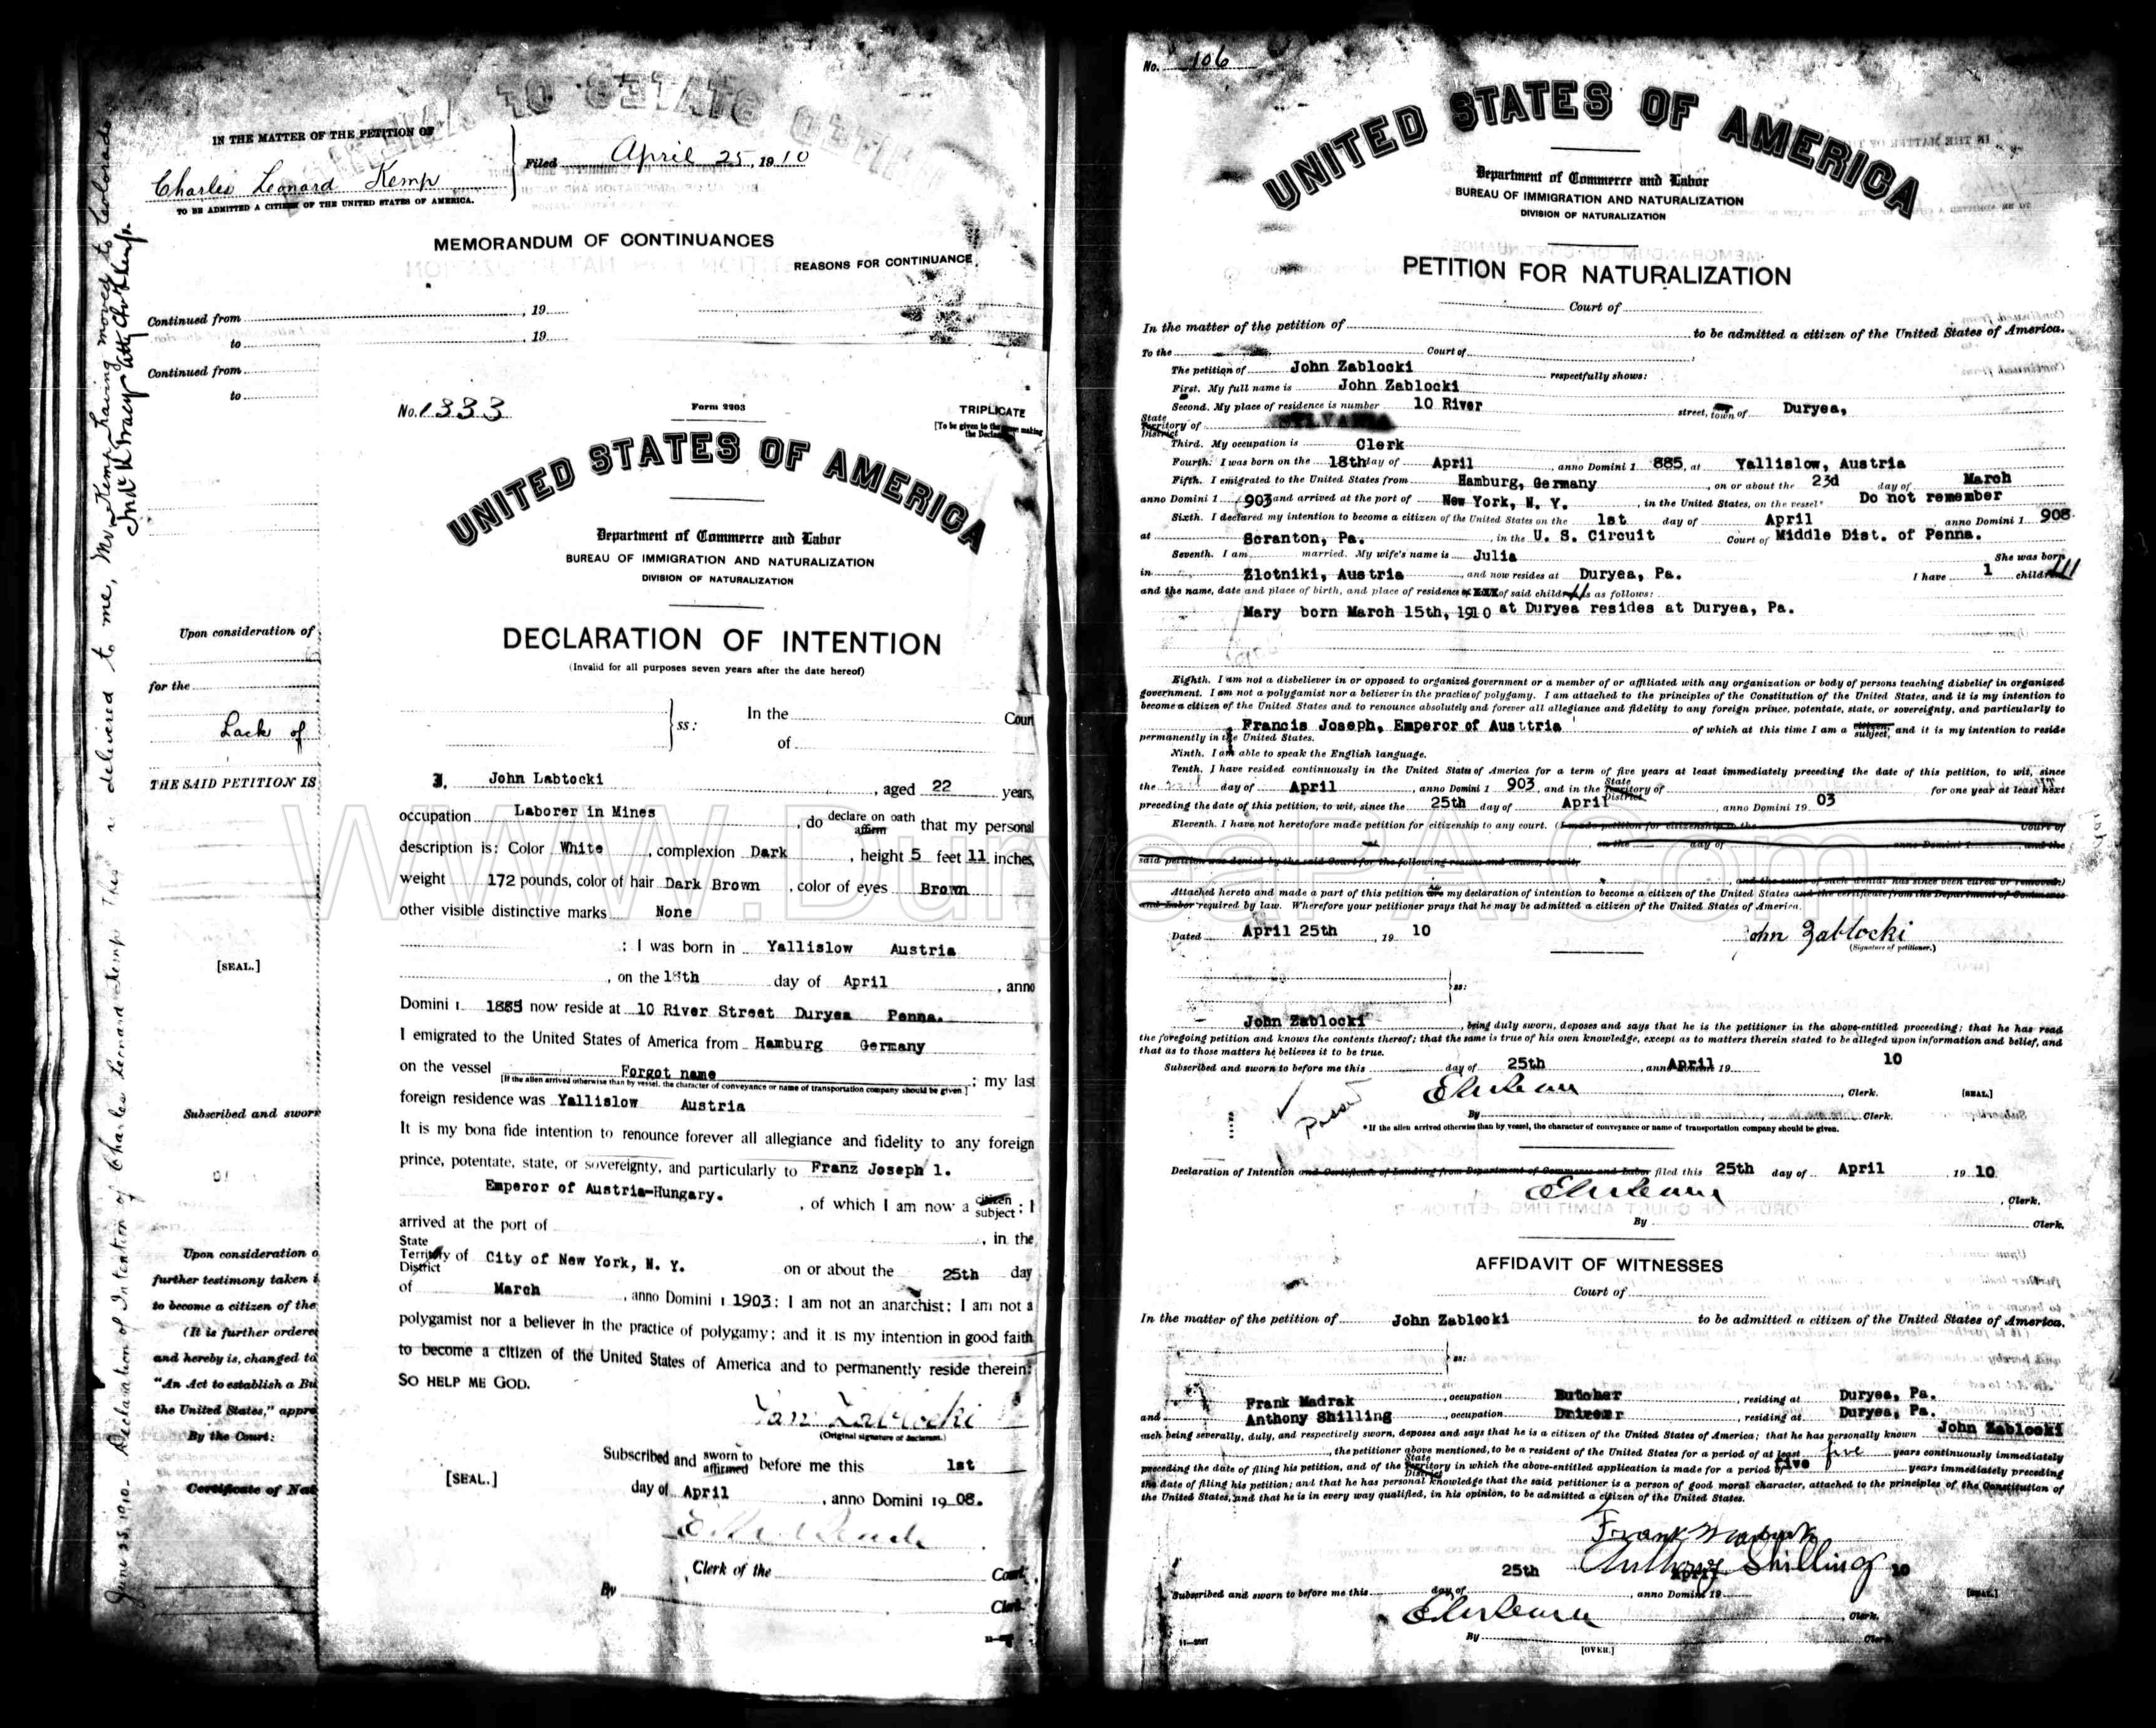 IN THE MATTER OF THE PETITION OF
Charles Leonard Kemp
TO BE ADMITTED A CITIZEN OF THE UNITED STATES OF AMERICA.
Filed April 25, 1910
MEMORANDUM OF CONTINUANCES
REASONS FOR CONTINUANCE
Continued from , 19
to , 19
Continued from
to
Upon consideration of
for the
Lack of
THE SAID PETITION IS
[SEAL.]
Subscribed and sworn
Upon consideration o
further testimony taken
to become a citizen of the
(It is further ordered
and hereby is, changed to
"An Act to establish a Bu
the United States," appro
By the Court:
Certificate of Nat
June 25, 1910. Declaration of Intention of Charles Leonard Kemp delivered to me, Mr. Kemp having moved to Colorado
No. 1333
Form 2203
TRIPLICATE
[To be given to the making the Declar
UNITED STATES OF AMERICA
Department of Commerce and Labor
BUREAU OF IMMIGRATION AND NATURALIZATION
DIVISION OF NATURALIZATION
DECLARATION OF INTENTION
(Invalid for all purposes seven years after the date hereof)
ss: In the Court
of
I, John Labtocki , aged 22 years,
occupation Laborer in Mines , do declare on oath affirm that my personal
description is: Color White , complexion Dark , height 5 feet 11 inches,
weight 172 pounds, color of hair Dark Brown , color of eyes Brown
other visible distinctive marks None
: I was born in Yallislow Austria
, on the 18th day of April , anno
Domini 1 1885 now reside at 10 River Street Duryea Penna.
I emigrated to the United States of America from Hamburg Germany
on the vessel Forgot name ; my last
[If the alien arrived otherwise than by vessel, the character of conveyance or name of transportation company should be given.]
foreign residence was Yallislow Austria
It is my bona fide intention to renounce forever all allegiance and fidelity to any foreign
prince, potentate, state, or sovereignty, and particularly to Franz Joseph 1.
Emperor of Austria-Hungary. , of which I am now a citizen subject; I
arrived at the port of , in the
State Territory District of City of New York, N. Y. on or about the 25th day
of March , anno Domini 1 1903: I am not an anarchist; I am not a
polygamist nor a believer in the practice of polygamy; and it is my intention in good faith
to become a citizen of the United States of America and to permanently reside therein:
SO HELP ME GOD.
Jan Zablocki
(Original signature of declarant.)
Subscribed and sworn to affirmed before me this 1st
[SEAL.]
day of April , anno Domini 1908.
Clerk of the Court.
By Clerk.
No. 106
UNITED STATES OF AMERICA
Department of Commerce and Labor
BUREAU OF IMMIGRATION AND NATURALIZATION
DIVISION OF NATURALIZATION
PETITION FOR NATURALIZATION
Court of
In the matter of the petition of to be admitted a citizen of the United States of America.
To the Court of
The petition of John Zablocki respectfully shows:
First. My full name is John Zablocki
Second. My place of residence is number 10 River street, town of Duryea,
State Territory District of
Third. My occupation is Clerk
Fourth. I was born on the 18th day of April , anno Domini 1 885, at Yallislow, Austria
Fifth. I emigrated to the United States from Hamburg, Germany , on or about the 23d day of March
anno Domini 1 903 and arrived at the port of New York, N. Y. , in the United States, on the vessel* Do not remember
Sixth. I declared my intention to become a citizen of the United States on the 1st day of April anno Domini 1 908
at Scranton, Pa. , in the U. S. Circuit Court of Middle Dist. of Penna.
Seventh. I am married. My wife's name is Julia She was born
in Zlotniki, Austria and now resides at Duryea, Pa. I have 1 child
and the name, date and place of birth, and place of residence of said child is as follows:
Mary born March 15th, 1910 at Duryea resides at Duryea, Pa.
Eighth. I am not a disbeliever in or opposed to organized government or a member of or affiliated with any organization or body of persons teaching disbelief in organized
government. I am not a polygamist nor a believer in the practice of polygamy. I am attached to the principles of the Constitution of the United States, and it is my intention to
become a citizen of the United States and to renounce absolutely and forever all allegiance and fidelity to any foreign prince, potentate, state, or sovereignty, and particularly to
Francis Joseph, Emperor of Austtria of which at this time I am a citizen, subject, and it is my intention to reside
permanently in the United States.
Ninth. I am able to speak the English language.
Tenth. I have resided continuously in the United States of America for a term of five years at least immediately preceding the date of this petition, to wit, since
the day of April , anno Domini 1 903 , and in the State Territory District of for one year at least next
preceding the date of this petition, to wit, since the 25th day of April anno Domini 19 03
Eleventh. I have not heretofore made petition for citizenship to any court. (I made petition for citizenship to the Court of
on the day of anno Domini 1 and the
said petition was denied by the said Court for the following reasons and causes, to wit,
, and the cause of such denial has since been cured or removed.)
Attached hereto and made a part of this petition are my declaration of intention to become a citizen of the United States and the certificate from the Department of Commerce
and Labor required by law. Wherefore your petitioner prays that he may be admitted a citizen of the United States of America.
Dated April 25th , 19 10
John Zablocki
(Signature of petitioner.)
ss:
John Zablocki , being duly sworn, deposes and says that he is the petitioner in the above-entitled proceeding; that he has read
the foregoing petition and knows the contents thereof; that the same is true of his own knowledge, except as to matters therein stated to be alleged upon information and belief, and
that as to those matters he believes it to be true.
Subscribed and sworn to before me this 25th day of April , anno Domini 19 10
, Clerk. [SEAL.]
By Clerk.
*If the alien arrived otherwise than by vessel, the character of conveyance or name of transportation company should be given.
Declaration of Intention and Certificate of Landing from Department of Commerce and Labor filed this 25th day of April 19 10
, Clerk.
By Clerk.
AFFIDAVIT OF WITNESSES
Court of
In the matter of the petition of John Zablocki to be admitted a citizen of the United States of America.
ss:
Frank Madrak , occupation Butcher , residing at Duryea, Pa.
and Anthony Shilling , occupation , residing at Duryea, Pa.
each being severally, duly, and respectively sworn, deposes and says that he is a citizen of the United States of America; that he has personally known John Zablocki
, the petitioner above mentioned, to be a resident of the United States for a period of at least five years continuously immediately
preceding the date of filing his petition, and of the State Territory District in which the above-entitled application is made for a period of five years immediately preceding
the date of filing his petition; and that he has personal knowledge that the said petitioner is a person of good moral character, attached to the principles of the Constitution of
the United States, and that he is in every way qualified, in his opinion, to be admitted a citizen of the United States.
Frank Madrak
Anthony Shilling
Subscribed and sworn to before me this 25th day of April , anno Domini 19 10 [SEAL.]
, Clerk.
By Clerk.
[OVER.]
www.DuryeaPA.Com